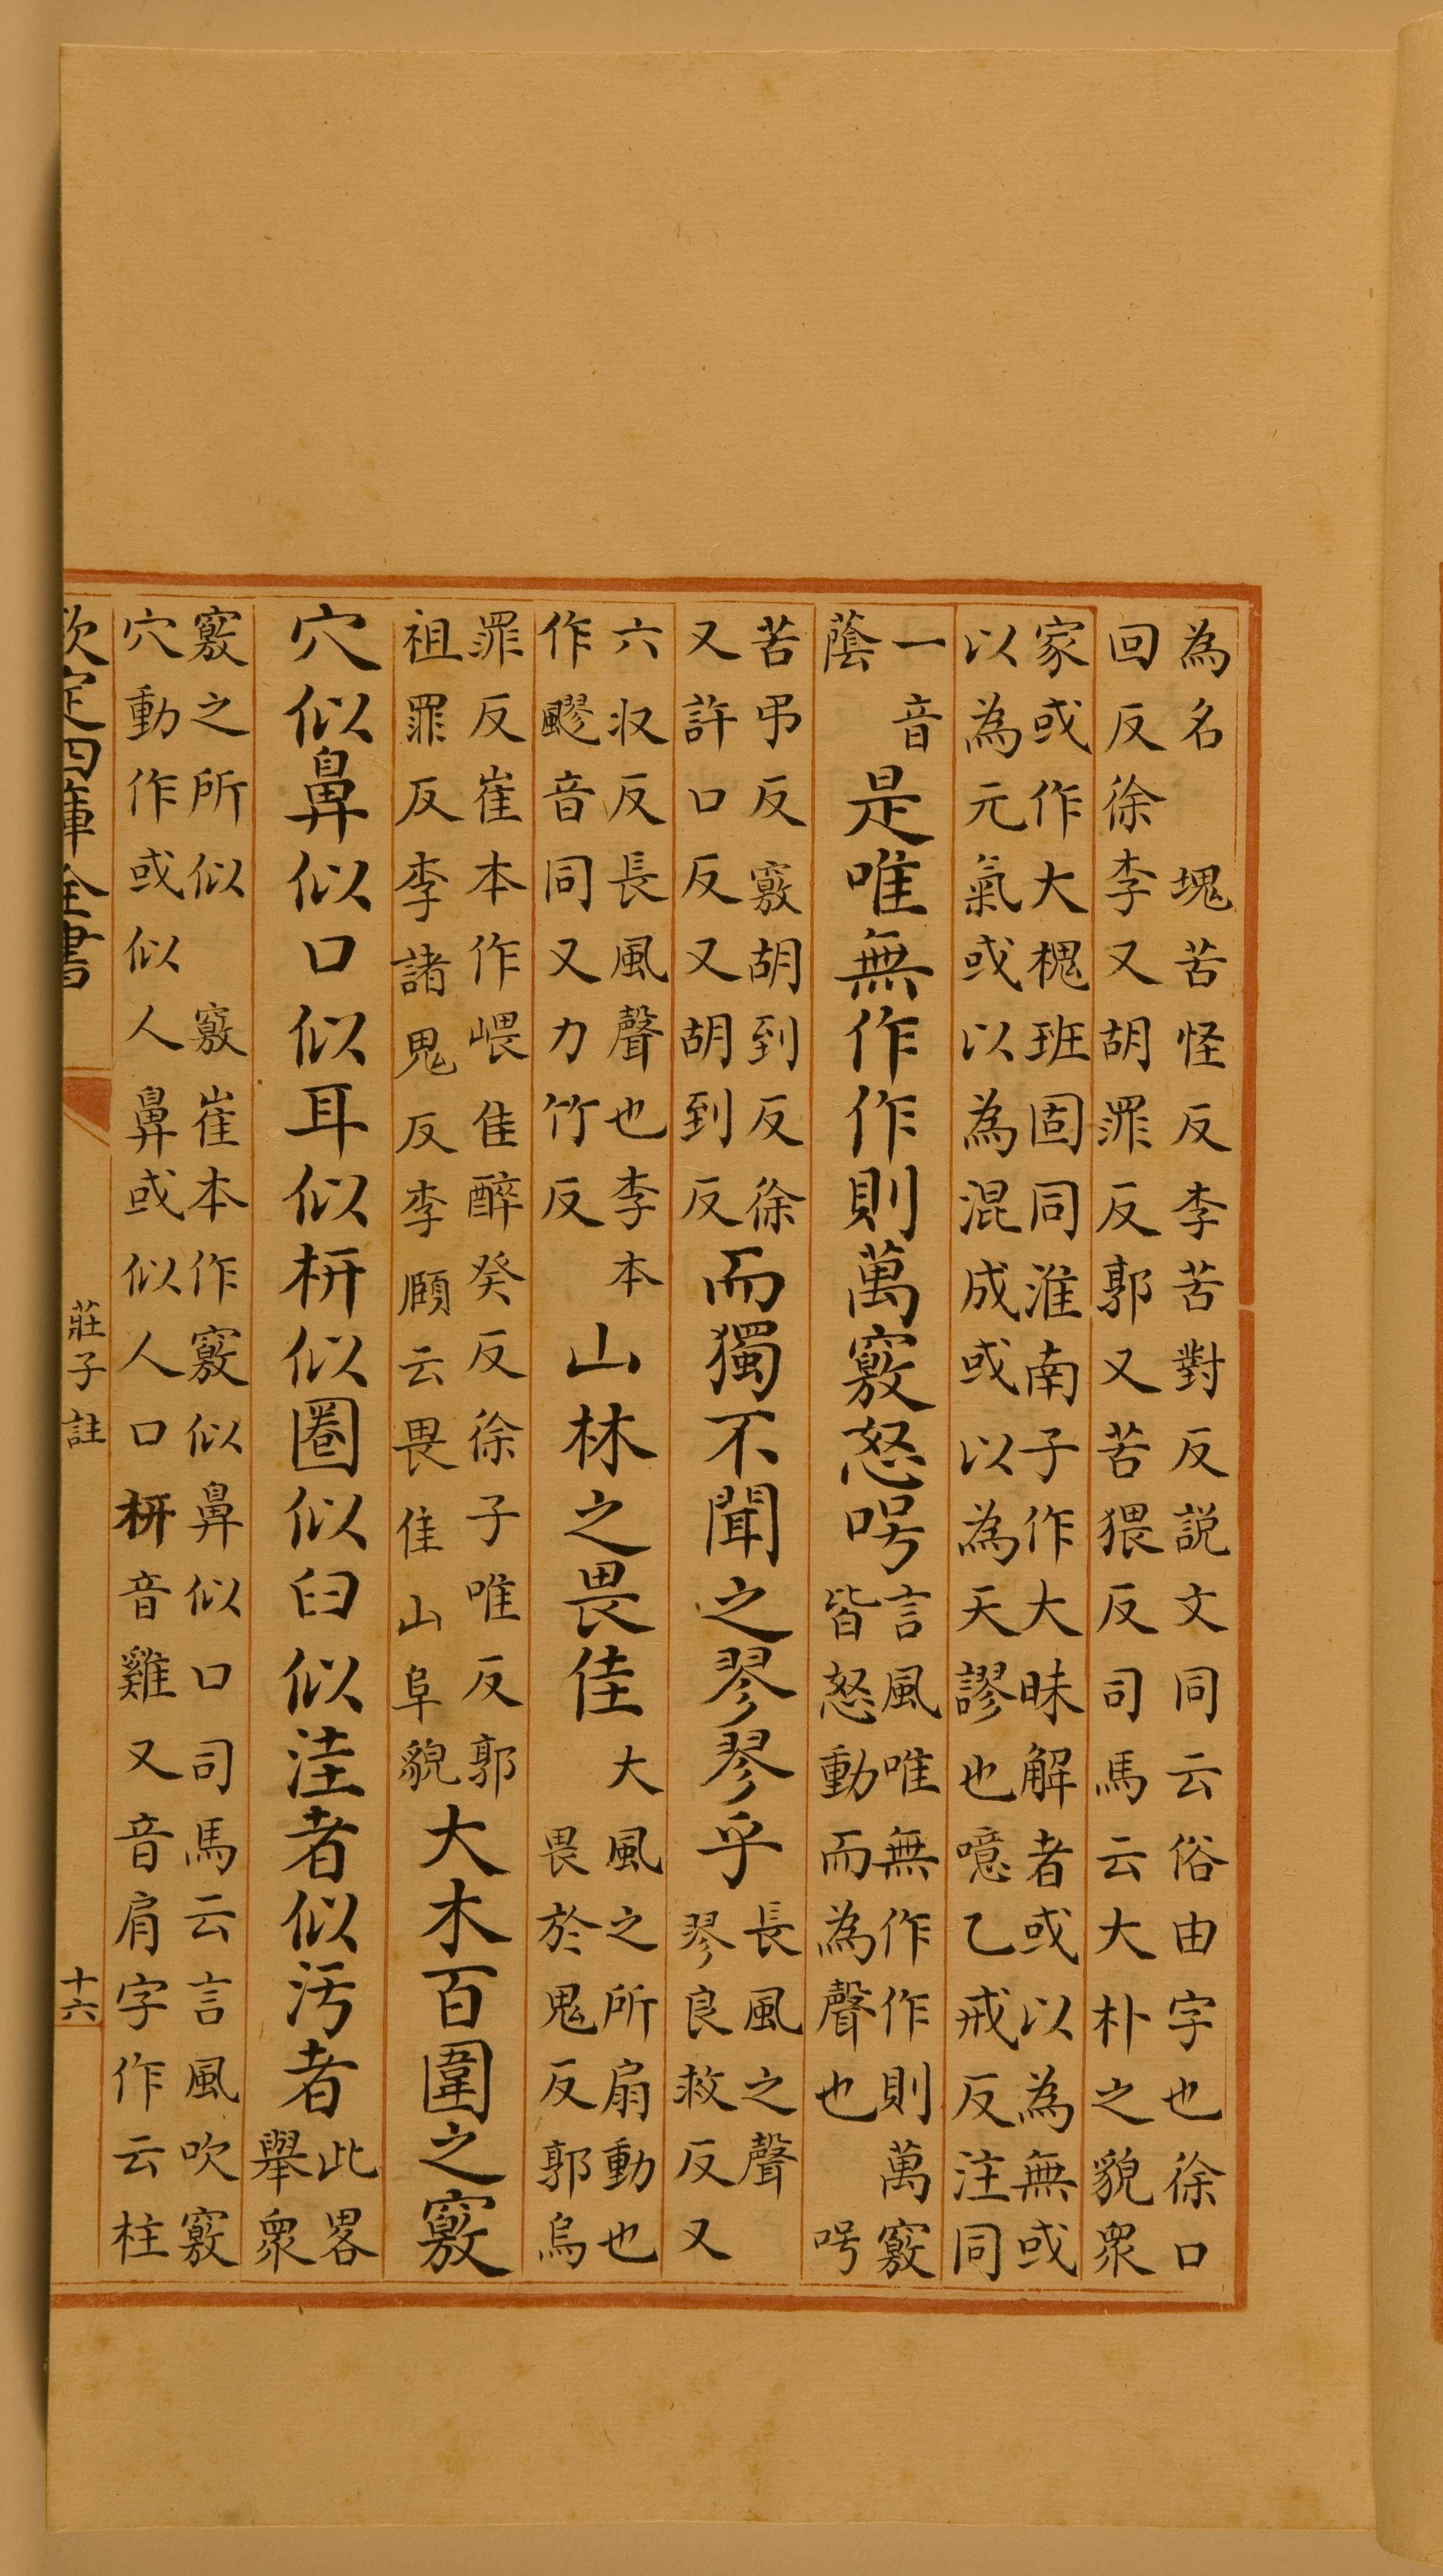 為名　塊苦怪反李苦對反説文同云俗由字也徐口
回反徐李又胡罪反郭又苦猥反司馬云大朴之貌衆
家或作大槐班固同淮南子作大昧解者或以為無或
以為元氣或以為混成或以為天謬也噫乙戒反注同
一音
蔭
是唯無作作則萬竅怒呺
言風唯無作作則萬竅
皆怒動而為聲也　呺
苦弔反竅胡到反徐
又許口反又胡到反
而獨不聞之翏翏乎
長風之聲
翏良救反又
六收反長風聲也李本
作飂音同又力竹反
山林之畏佳
大風之所扇動也
畏於鬼反郭烏
罪反崔本作嵔佳醉癸反徐子唯反郭
祖罪反李諸鬼反李頤云畏佳山阜貌
大木百圍之竅
穴似鼻似口似耳似枅似圈似臼似洼者似污者
此畧
舉衆
竅之所似　竅崔本作竅似鼻似口司馬云言風吹竅
穴動作或似人鼻或似人口枅音雞又音肩字作云柱
欽定四庫全書
莊子註
十六